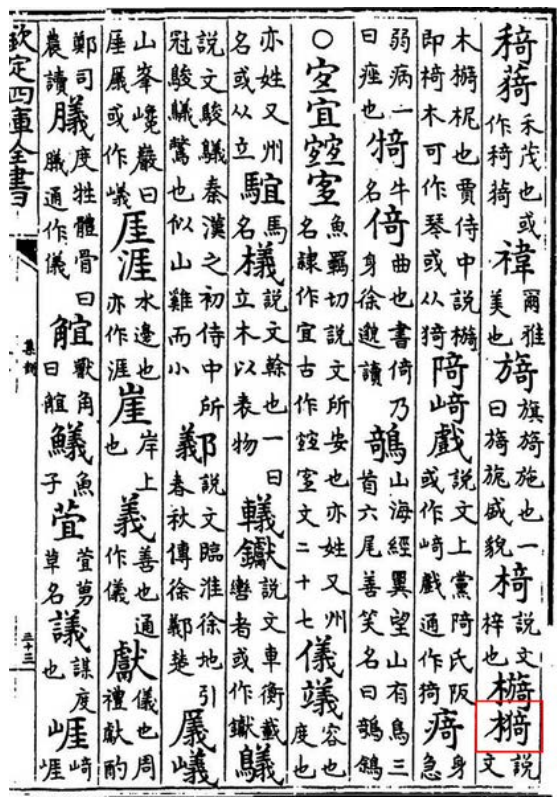 稦䅬禾茂也或作稦猗禕爾雅美也旖旗旖施也一曰旖旎盛貌椅說文梓也檹㩽說文
木檹柅也賈侍中說檹即椅木可作琴或从猗陭崎戲說文上黨陭氏阪或作崎戲通作猗㾨身急
弱病一曰痤也犄牛名倚曲也書倚乃身徐邈讀鵸山海經翼望山有鳥三首六尾善笑名曰鵸鵌
○宐宜魚羈切說文所安也亦姓又州名隸作宜古作文二十七儀容也度也
亦姓又州名或从立馬名檥說文榦也一曰立木以表物轙钀說文車衡載轡者或作钀鸃
說文鵔鸃秦漢之初侍中所冠鵔鸃鷩也似山雞而小䣡說文臨淮徐地引春秋傳徐䣡楚㕒㠖
山峯巉巖曰厓㕒或作㠖厓涯水邊也亦作涯崖岸上也義善也通作儀獻儀也周禮獻酌
鄭司農讀䑏度牲體骨曰䑏通作儀䚐獸角曰䚐魚子萓萓蒡草名議謀度也崕崎崕
欽定四庫全書
集韻
三十三